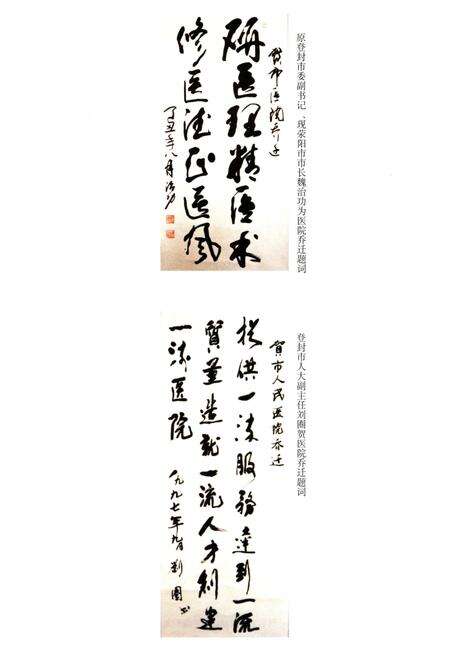 原登封市委副书记、现荥阳市市长魏治功为医院乔迁题词
贺市医院乔迁
研医理精医术
修医德正医风
丁丑年八月治功
登封市人大副主任刘圈贺医院乔迁题词
贺市人民医院乔迁
提供一流服务达到一流
質量造就一流人才创建
一流医院
一九九七年九月刘圈书